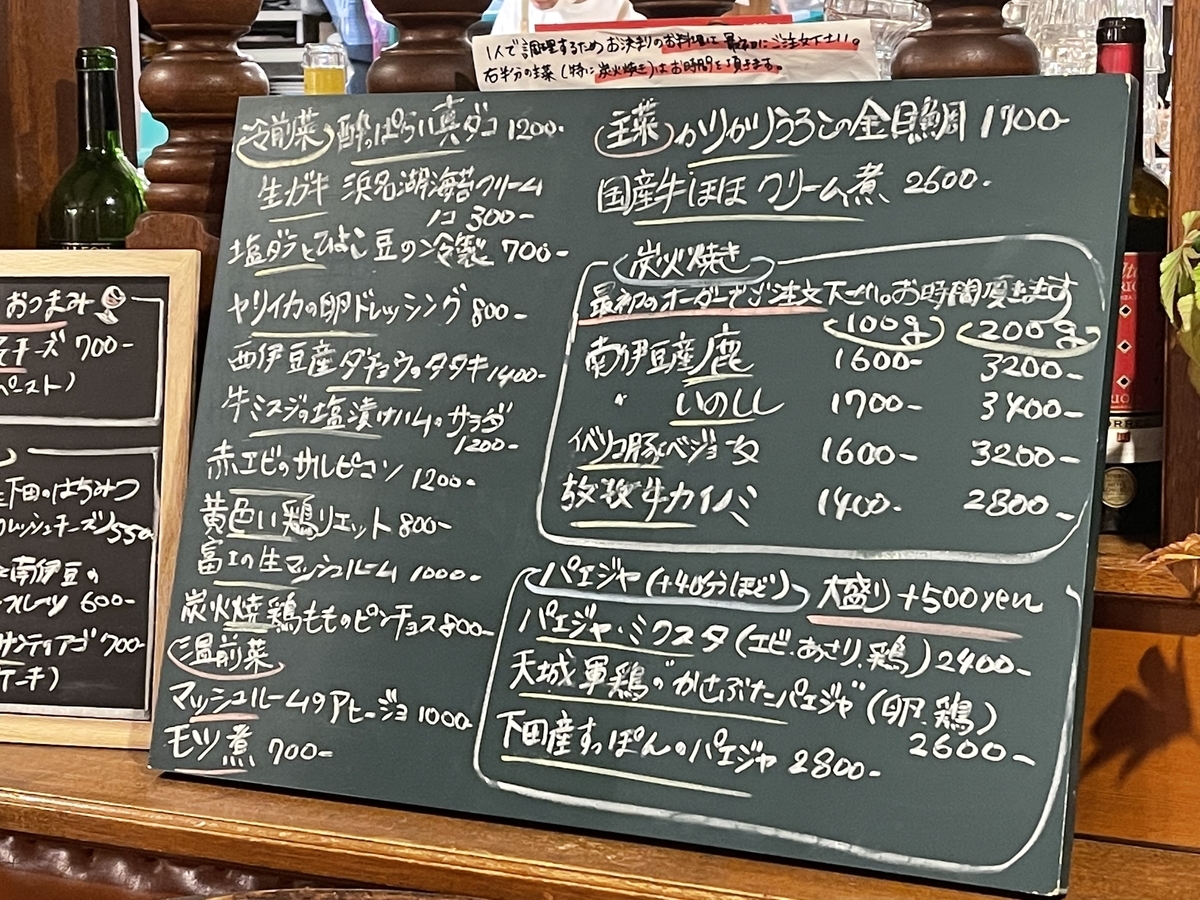 1人で調理するためお決りのお料理は最初にご注文下さい。
右半分の主菜(特に炭火焼き)はお時間を頂きます。
冷前菜 酔っぱらい真ダコ 1200-
生ガキ 浜名湖海苔クリーム
1コ 300-
塩ダラとひよこ豆の冷製 700-
ヤリイカの卵ドレッシング 800-
西伊豆産ダチョウのタタキ 1400-
牛ミスジの塩漬けハムのサラダ
1200-
赤エビのサルピコン 1200-
黄色い鶏リエット 800-
富士の生マッシュルーム 1000-
炭火焼鶏もものピンチョス 800-
温前菜
マッシュルームのアヒージョ 1000-
モツ煮 700-
主菜 カリカリうろこの金目鯛 1700-
国産牛ほほ クリーム煮 2600-
炭火焼き
最初のオーダーでご注文下さい。お時間頂きます
100g 200g
南伊豆産鹿 1600- 3200-
〃 いのしし 1700- 3400-
イベリコ豚ベジョータ 1600- 3200-
放牧牛カイノミ 1400- 2800-
パエジャ(+40分ほど) 大盛り+500yen
パエジャ・ミクスタ(エビ.あさり.鶏) 2400-
天城軍鶏のかさぶたパエジャ(卵.鶏)
2600-
下田産すっぽんのパエジャ 2800-
おつまみ
チーズ 700-
ペースト)
下田のはちみつ
フレッシュチーズ 550-
南伊豆の
600-
サンティアゴ 700-
ケーキ)